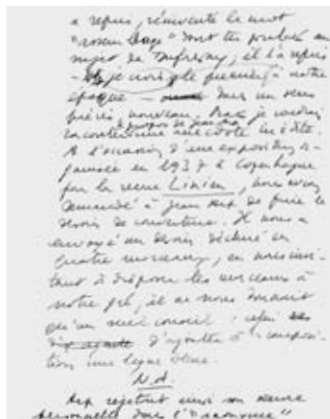 a repris, réinventé le mot
dont tu parles au
sujet de Dufresny, et l'a repris
- je crois le premier à notre
époque - dans un sens
précis, nouveau. je voudrais
raconter une anecdote inédite.
A l'occasion d'une exposition or-
ganisée en 1937 à Copenhague
par la revue Linien, nous avons
demandé à Jean Arp de faire le
dessin de couverture. Il nous a
envoyé un dessin déchiré en
quatre morceaux, en nous invi-
tant à disposer les morceaux à
notre gré, et ne nous donnant
qu'un seul conseil : celui
d'ajouter à la composi-
tion une ligne bleue.
N.A
Arp rejetait ainsi son œuvre
personnelle dans l'"anonyme"